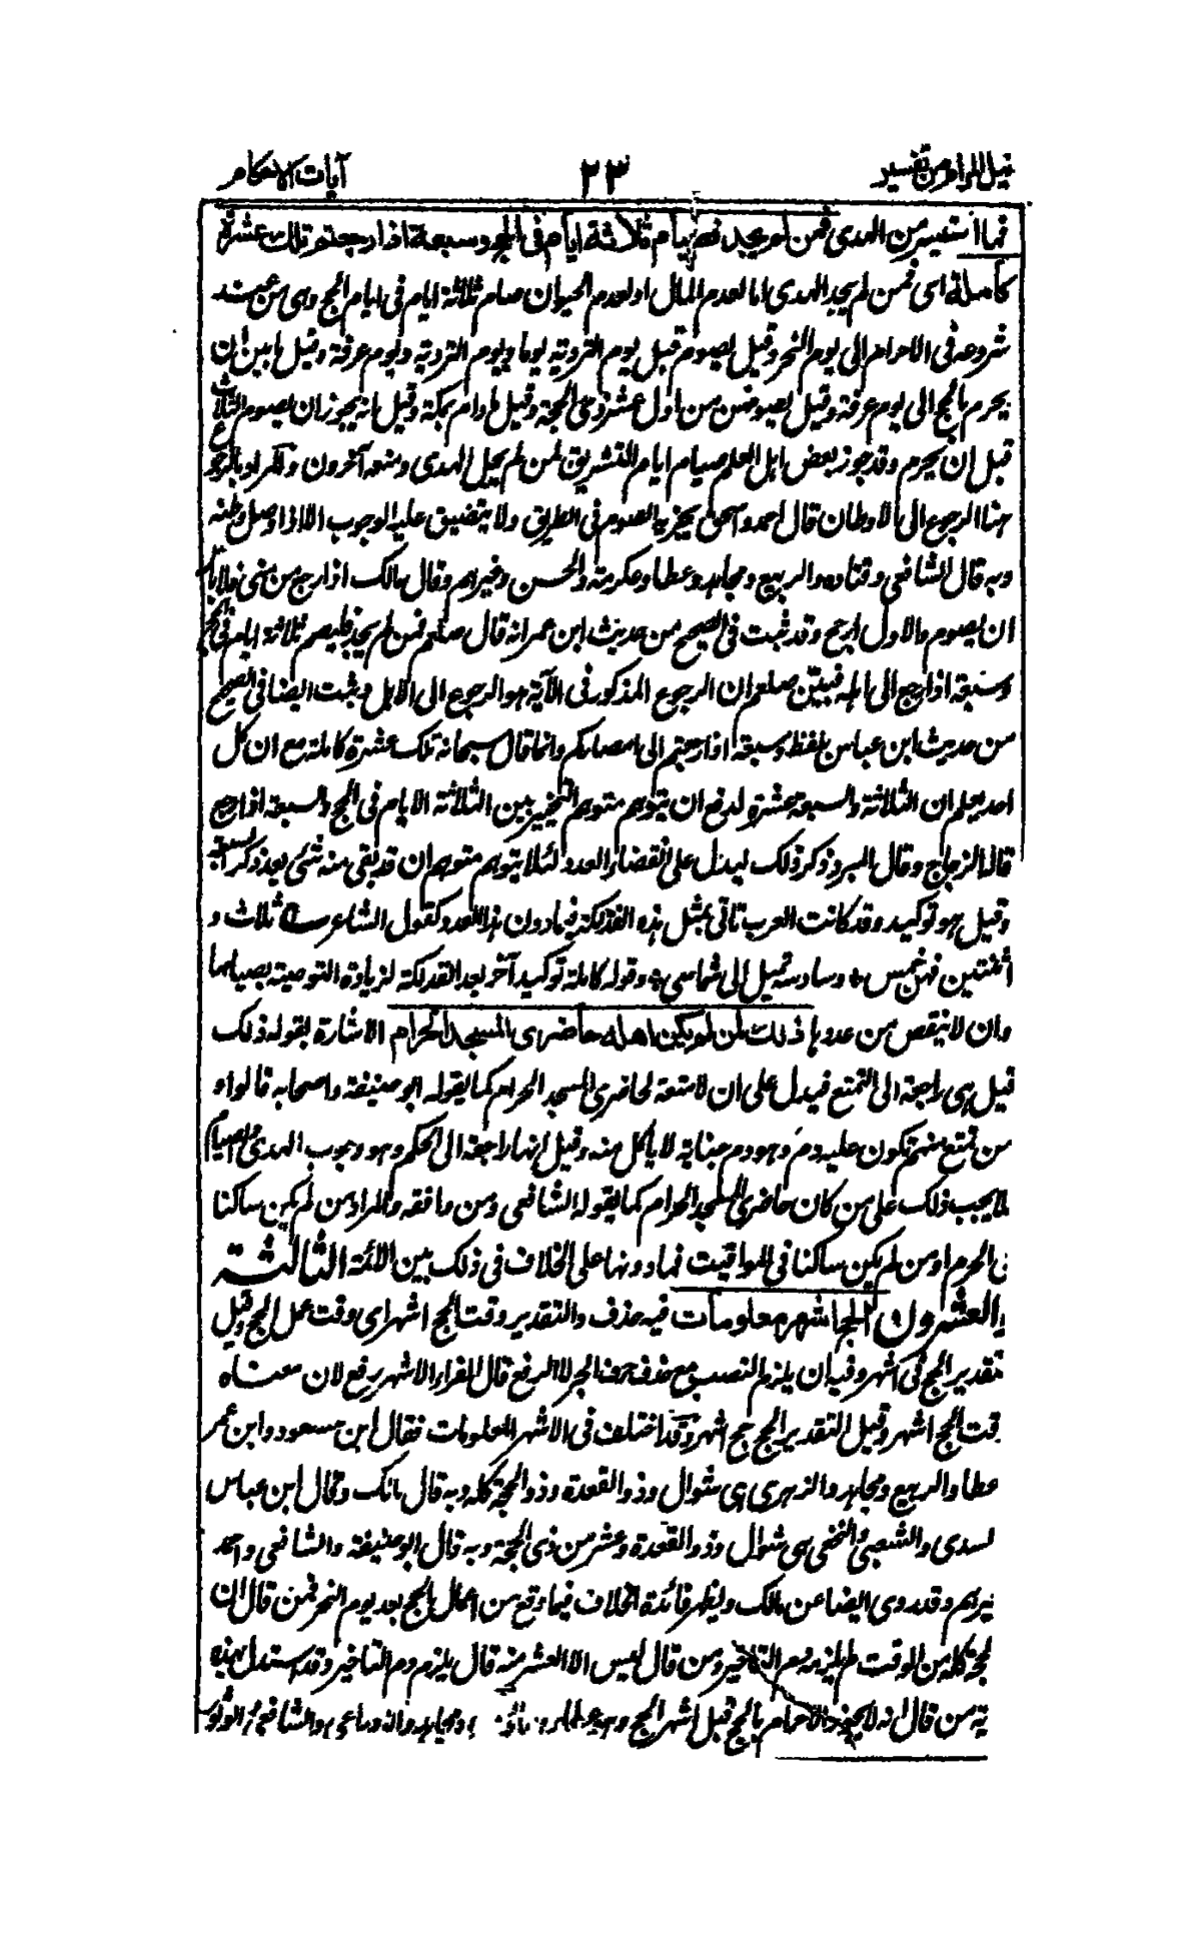 نيل المرام من تفسير ٢٣ آيات الاحكام
فما استيسر من الهدى فمن لم يجد فصيام ثلاثة ايام فى الحج وسبعة اذا رجعتم تلك عشرة
كاملة اى فمن لم يجد الهدى اما لعدم المال او لعدم الحيوان صام ثلاثة ايام فى ايام الحج وهى من عند
شروعه فى الاحرام الى يوم النحر وقيل يصوم قبل يوم التروية يوما ويوم التروية ويوم عرفة وقيل ما بين ان
يحرم بالحج الى يوم عرفة وقيل يصومهن من اول عشر ذى الحجة وقيل مادام بمكة وقيل انه يجوز ان يصوم الثلاث
قبل ان يحرم وقد جوز بعض اهل العلم صيام ايام التشريق لمن لم يجد الهدى ومنعه آخرون والمراد بالرجوع
هنا الرجوع الى الاوطان قال احمد واسحق يجزيه الصوم فى الطريق ولا يتضيق عليه الوجوب الا اذا وصل وطنه
وبه قال الشافعى وقتاده والربيع ومجاهد وعطا وعكرمة والحسن وغيرهم وقال مالك اذا رجع من منى فلا باس
ان يصوم والاول ارجح وقد ثبت فى الصحيح من حديث ابن عمر انه قال صلعم فمن لم يجد فليصم ثلاثة ايام فى الحج
وسبعة اذا رجع الى اهله فبيّن صلعم ان الرجوع المذكور فى الآية هو الرجوع الى الاهل وثبت ايضا فى الصحيح
من حديث ابن عباس بلفظ وسبعة اذا رجعتم الى امصاركم وانما قال سبحانه تلك عشرة كاملة مع ان كل
احد يعلم ان الثلاثة والسبعة عشرة لدفع ان يتوهم متوهم التخيير بين الثلاثة الايام فى الحج والسبعة اذا رجع
قاله الزجاج وقال المبرد ذكر ذلك ليدل على انقضاء العدد لئلا يتوهم متوهم ان قد بقى منه شئ بعد ذكر السبعة
وقيل هو توكيد وقد كانت العرب تاتى بمثل هذه الفذلكة فيما دون هذا العدد كقول الشاعر ثلاث و
اثنتين فهن خمس * وسادسة تميل الى شمامى * وقوله كاملة توكيد آخر بعد الفذلكة لزيادة التوصية بصيامها
وان لا ينقص من عددها ذلك لمن لم يكن اهله حاضرى المسجد الحرام الاشارة بقوله ذلك
قيل هى راجعة الى التمتع فيدل على ان لا متعة لحاضرى المسجد الحرام كما يقوله ابو حنيفة واصحابه قالوا و
من تمتع منهم تكون عليه دم وهو دم جناية لا ياكل منه وقيل انها راجعة الى الحكم وهو وجوب الهدى والصيام
فلا يجب ذلك على من كان حاضرى المسجد الحرام كما يقوله الشافعى ومن وافقه والمراد من لم يكن ساكنا
فى الحرم او من لم يكن ساكنا فى المواقيت فما دونها على الخلاف فى ذلك بين الائمة الثالثة
والعشرون الحج اشهر معلومات فيه حذف والتقدير وقت الحج اشهر اى وقت عمل الحج وقيل
تقدير الحج فى اشهر وفيه ان يلزم النصب مع حذف حرف الجر لا الرفع قال الفراء الاشهر رفع لان معناه
قت الحج اشهر وقيل التقدير الحج حج اشهر وقد اختلف فى الاشهر المعلومات فقال ابن مسعود وابن عمر
عطا والربيع ومجاهد والزهرى هى شوال وذو القعدة وذو الحجة كله وبه قال مالك وقال ابن عباس
لسدى والشعبى والنخعى هى شوال وذو القعدة وعشر من ذى الحجة وبه قال ابو حنيفة والشافعى واحمد
يرهم وقد روى ايضا عن مالك ويظهر فائدة الخلاف فيما وقع من اعمال الحج بعد يوم النحر فمن قال ان
لحجة كله من الوقت لم يلزمه دم التاخير ومن قال ليس الا العشر منه قال يلزم دم التاخير وقد استدل بهذه
ية من قال انه لا يجوز الاحرام بالحج قبل اشهر الحج وهو عطا و ومجاهد والاوزاعى والشافعى وابو ثور